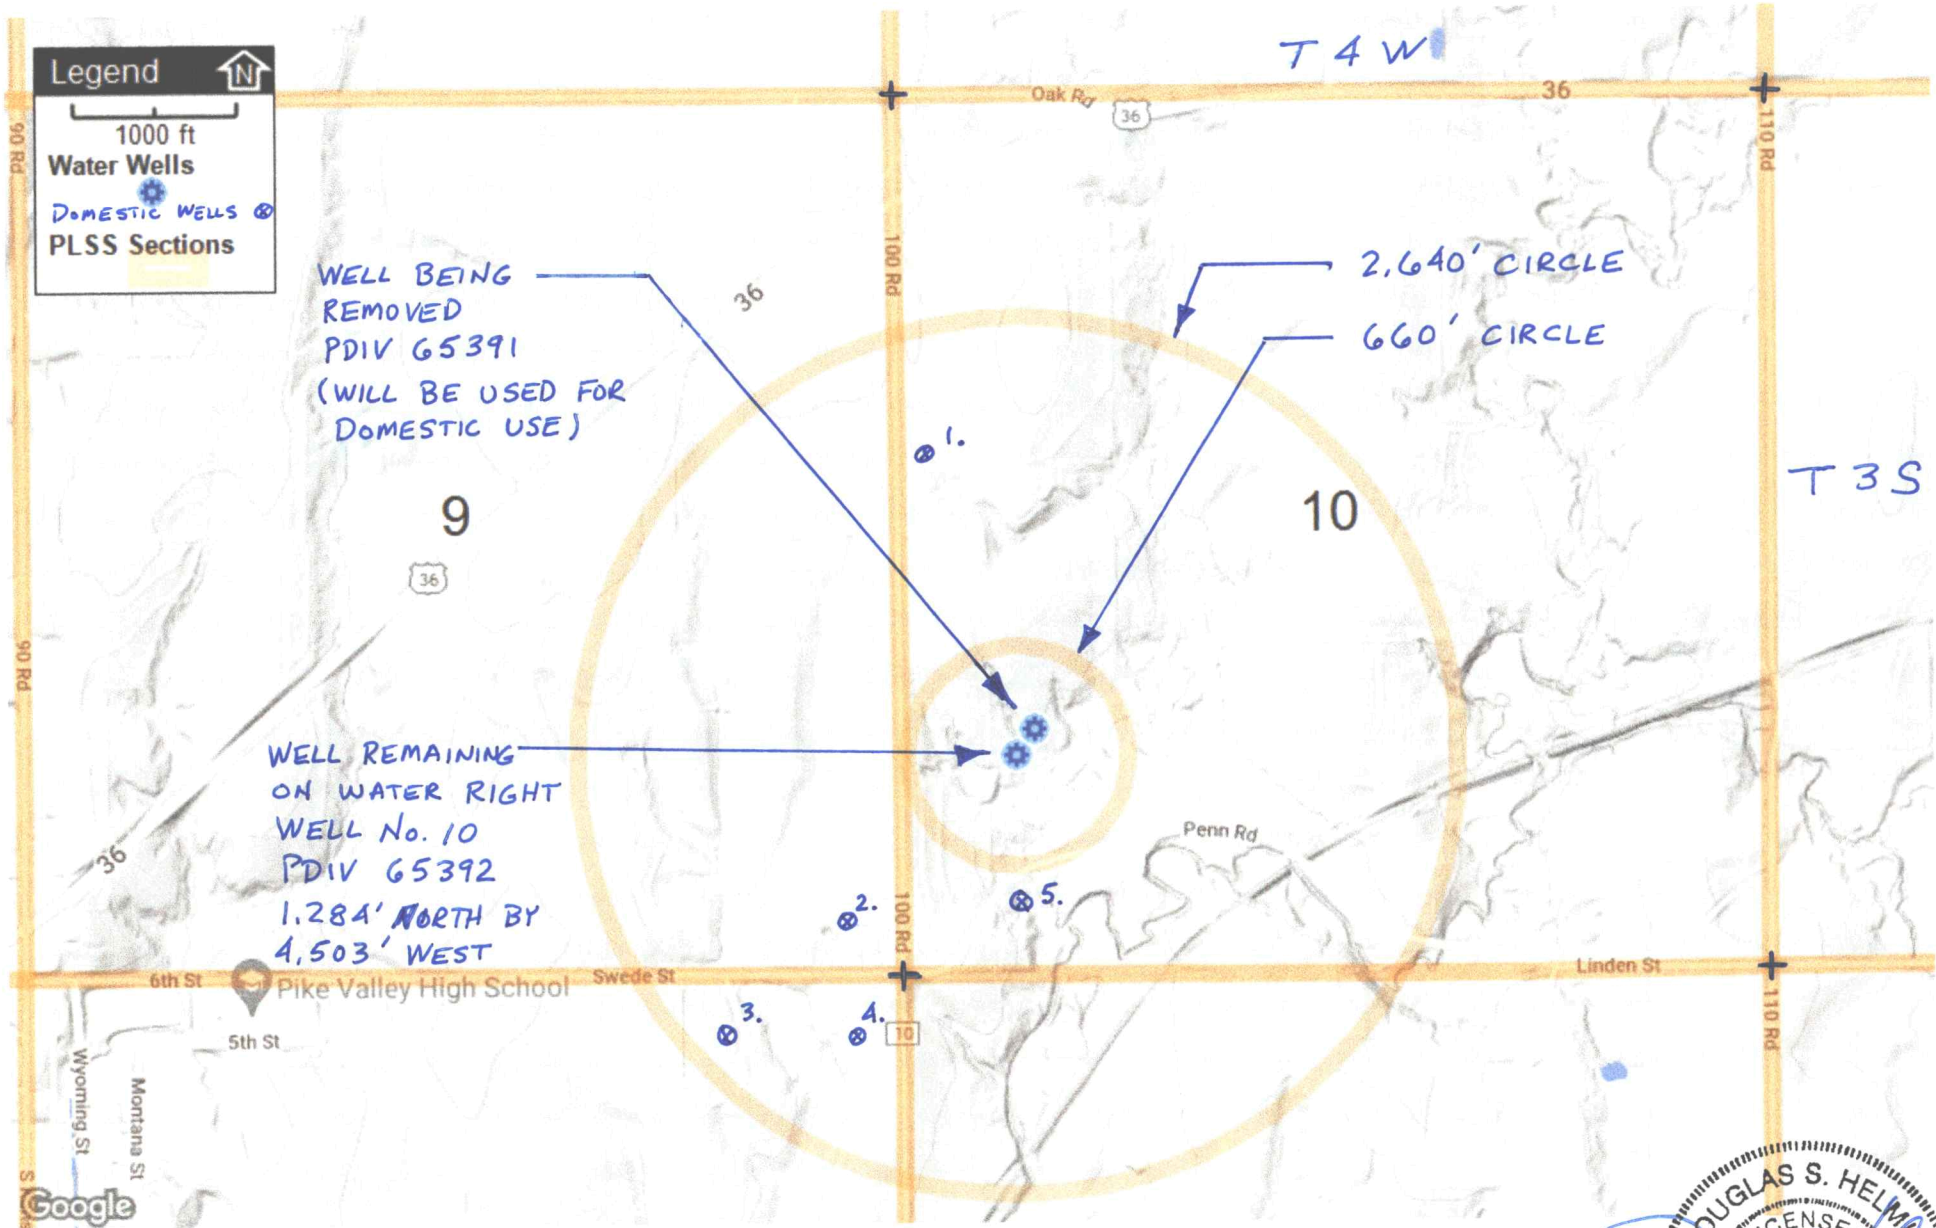 T 4 W
Legend
N
1000 ft
Water Wells
DOMESTIC WELLS ⊗
PLSS Sections
Oak Rd
36
36
90 Rd
110 Rd
100 Rd
WELL BEING
REMOVED
PDIV 65391
(WILL BE USED FOR
DOMESTIC USE)
36
2,640' CIRCLE
660' CIRCLE
1.
9
10
T 3 S
36
90 Rd
WELL REMAINING
ON WATER RIGHT
WELL No. 10
PDIV 65392
1,284' NORTH BY
4,503' WEST
36
Penn Rd
2.
100 Rd
5.
6th St
Pike Valley High School
Swede St
Linden St
5th St
3.
4.
10
110 Rd
Wyoming St
Montana St
Google
DOUGLAS S.